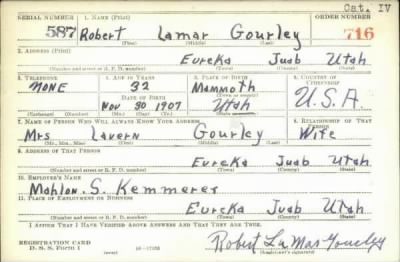 Cat. IV
SERIAL NUMBER 1. NAME (Print) ORDER NUMBER
587 Robert Lamar Gourley 716
(First) (Middle) (Last)
2. ADDRESS (Print)
Eureka Juab Utah
(Number and street or R. F. D. number) (Town) (County) (State)
3. TELEPHONE 4. AGE IN YEARS 5. PLACE OF BIRTH 6. COUNTRY OF CITIZENSHIP
NONE 32 Mammoth
DATE OF BIRTH (Town or county)
Nov 30 1907 Utah U.S.A.
(Exchange) (Number) (Mo.) (Day) (Yr.) (State or country)
7. NAME OF PERSON WHO WILL ALWAYS KNOW YOUR ADDRESS 8. RELATIONSHIP OF THAT PERSON
Mrs Lavern Gourley Wife
(Mr., Mrs., Miss) (First) (Middle) (Last)
9. ADDRESS OF THAT PERSON
Eureka Juab Utah
(Number and street or R. F. D. number) (Town) (County) (State)
10. EMPLOYER'S NAME
Mahlon. S. Kemmerer
11. PLACE OF EMPLOYMENT OR BUSINESS
Eureka Juab Utah
(Number and street or R. F. D. number) (Town) (County) (State)
I AFFIRM THAT I HAVE VERIFIED ABOVE ANSWERS AND THAT THEY ARE TRUE.
REGISTRATION CARD
D. S. S. FORM 1 (over) Robert LaMar Gourley
(Registrant's signature)